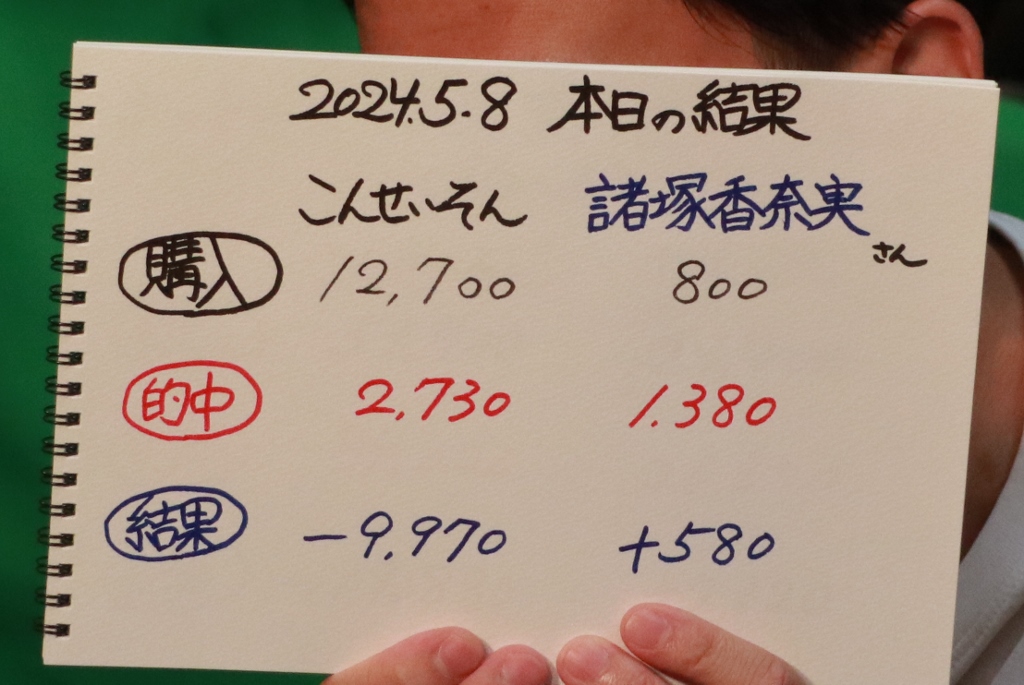 2024.5.8 本日の結果
こんせいそん 諸塚香奈実さん
購入 12,700 800
的中 2,730 1.380
結果 -9,970 +580